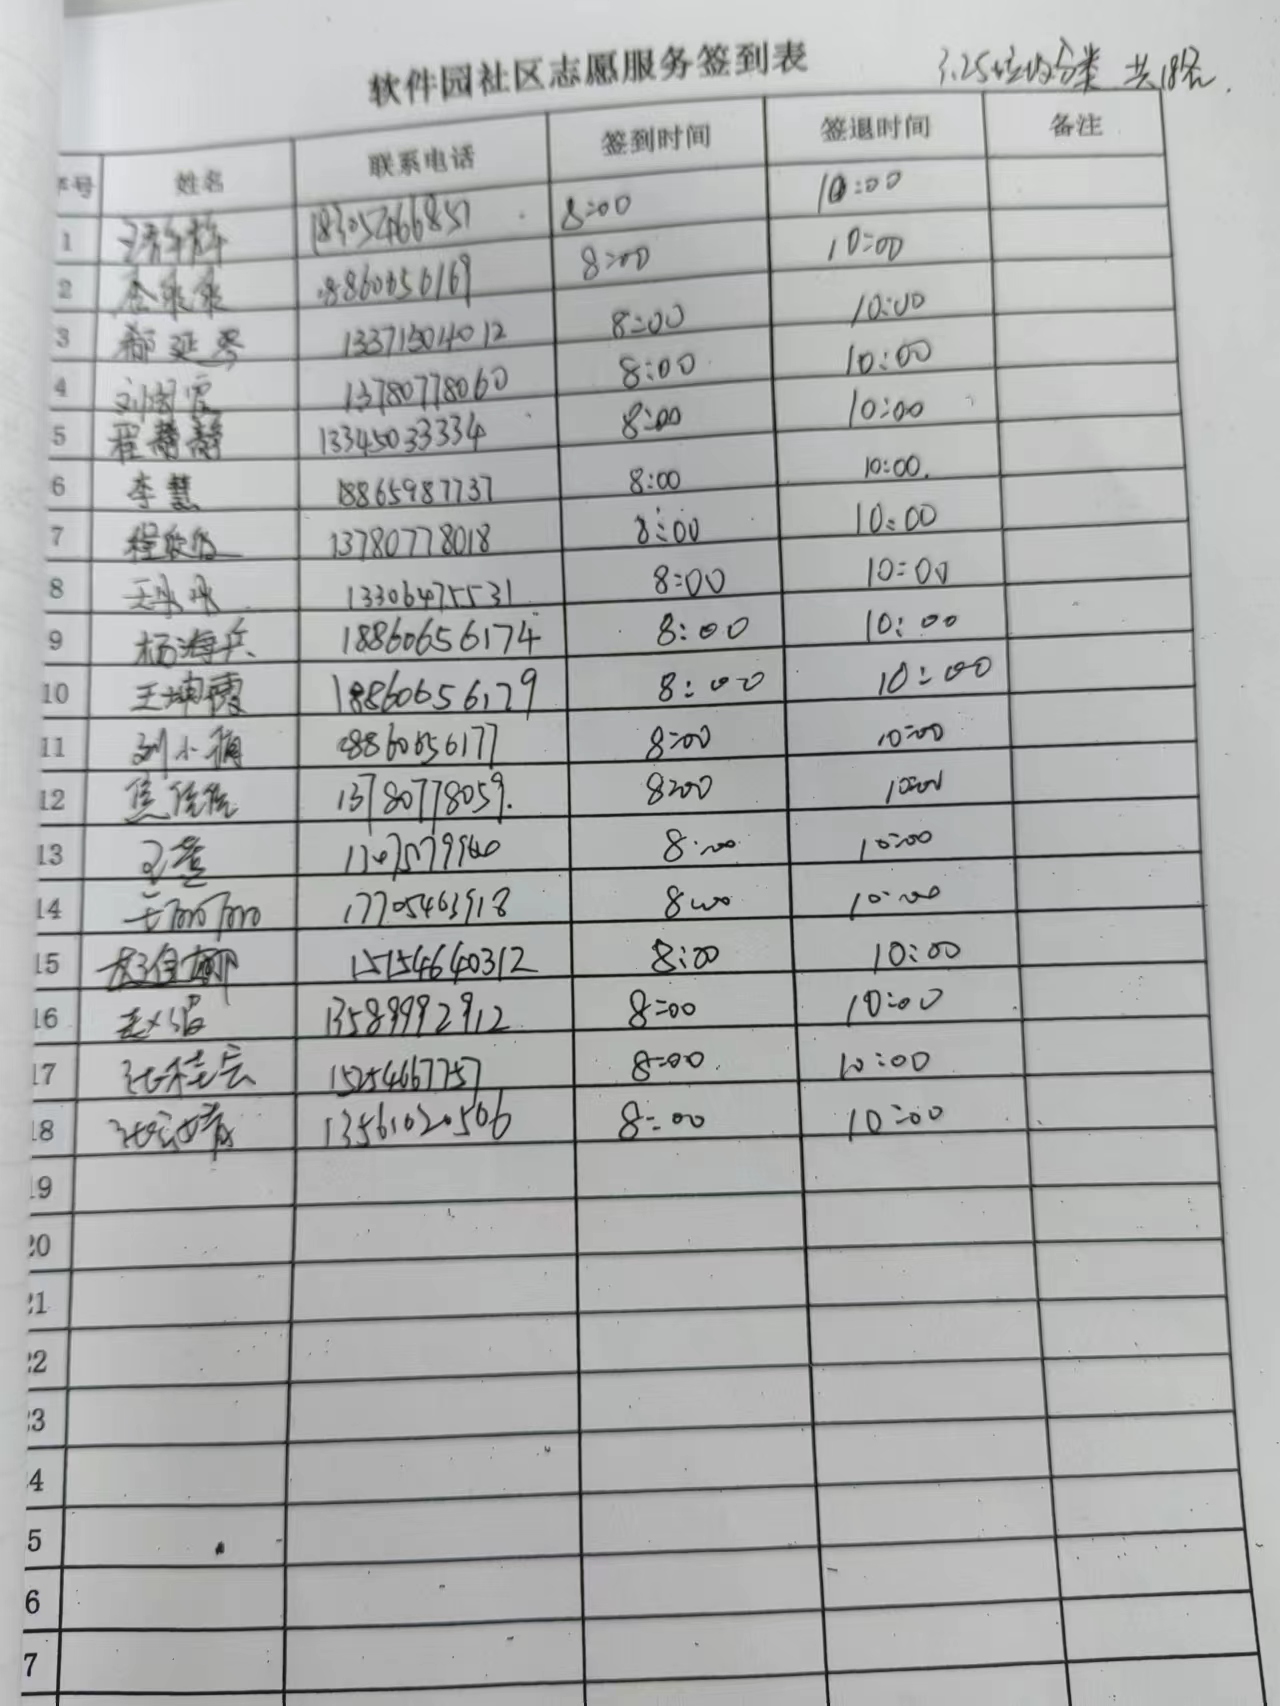 软件园社区志愿服务签到表
3.25垃圾分类 共18名
序号 姓名 联系电话 签到时间 签退时间 备注
1 18305466851 8:00 10:00
2 18860656169 8:00 10:00
3 13371504012 8:00 10:00
4 13780778060 8:00 10:00
5 程静静 13345033334 8:00 10:00
6 李慧 18865987737 8:00 10:00
7 13780778018 8:00 10:00
8 王冰冰 13306475531 8:00 10:00
9 杨海兵 18860656174 8:00 10:00
10 王坤霞 18860656179 8:00 10:00
11 18860656177 8:00 10:00
12 焦佳佳 13780778059 8:00 10:00
13 8:00 10:00
14 王丽丽 17705463918 8:00 10:00
15 15154640312 8:00 10:00
16 13589992912 8:00 10:00
17 15254667757 8:00 10:00
18 13561020506 8:00 10:00
19
20
21
22
23
24
25
26
27